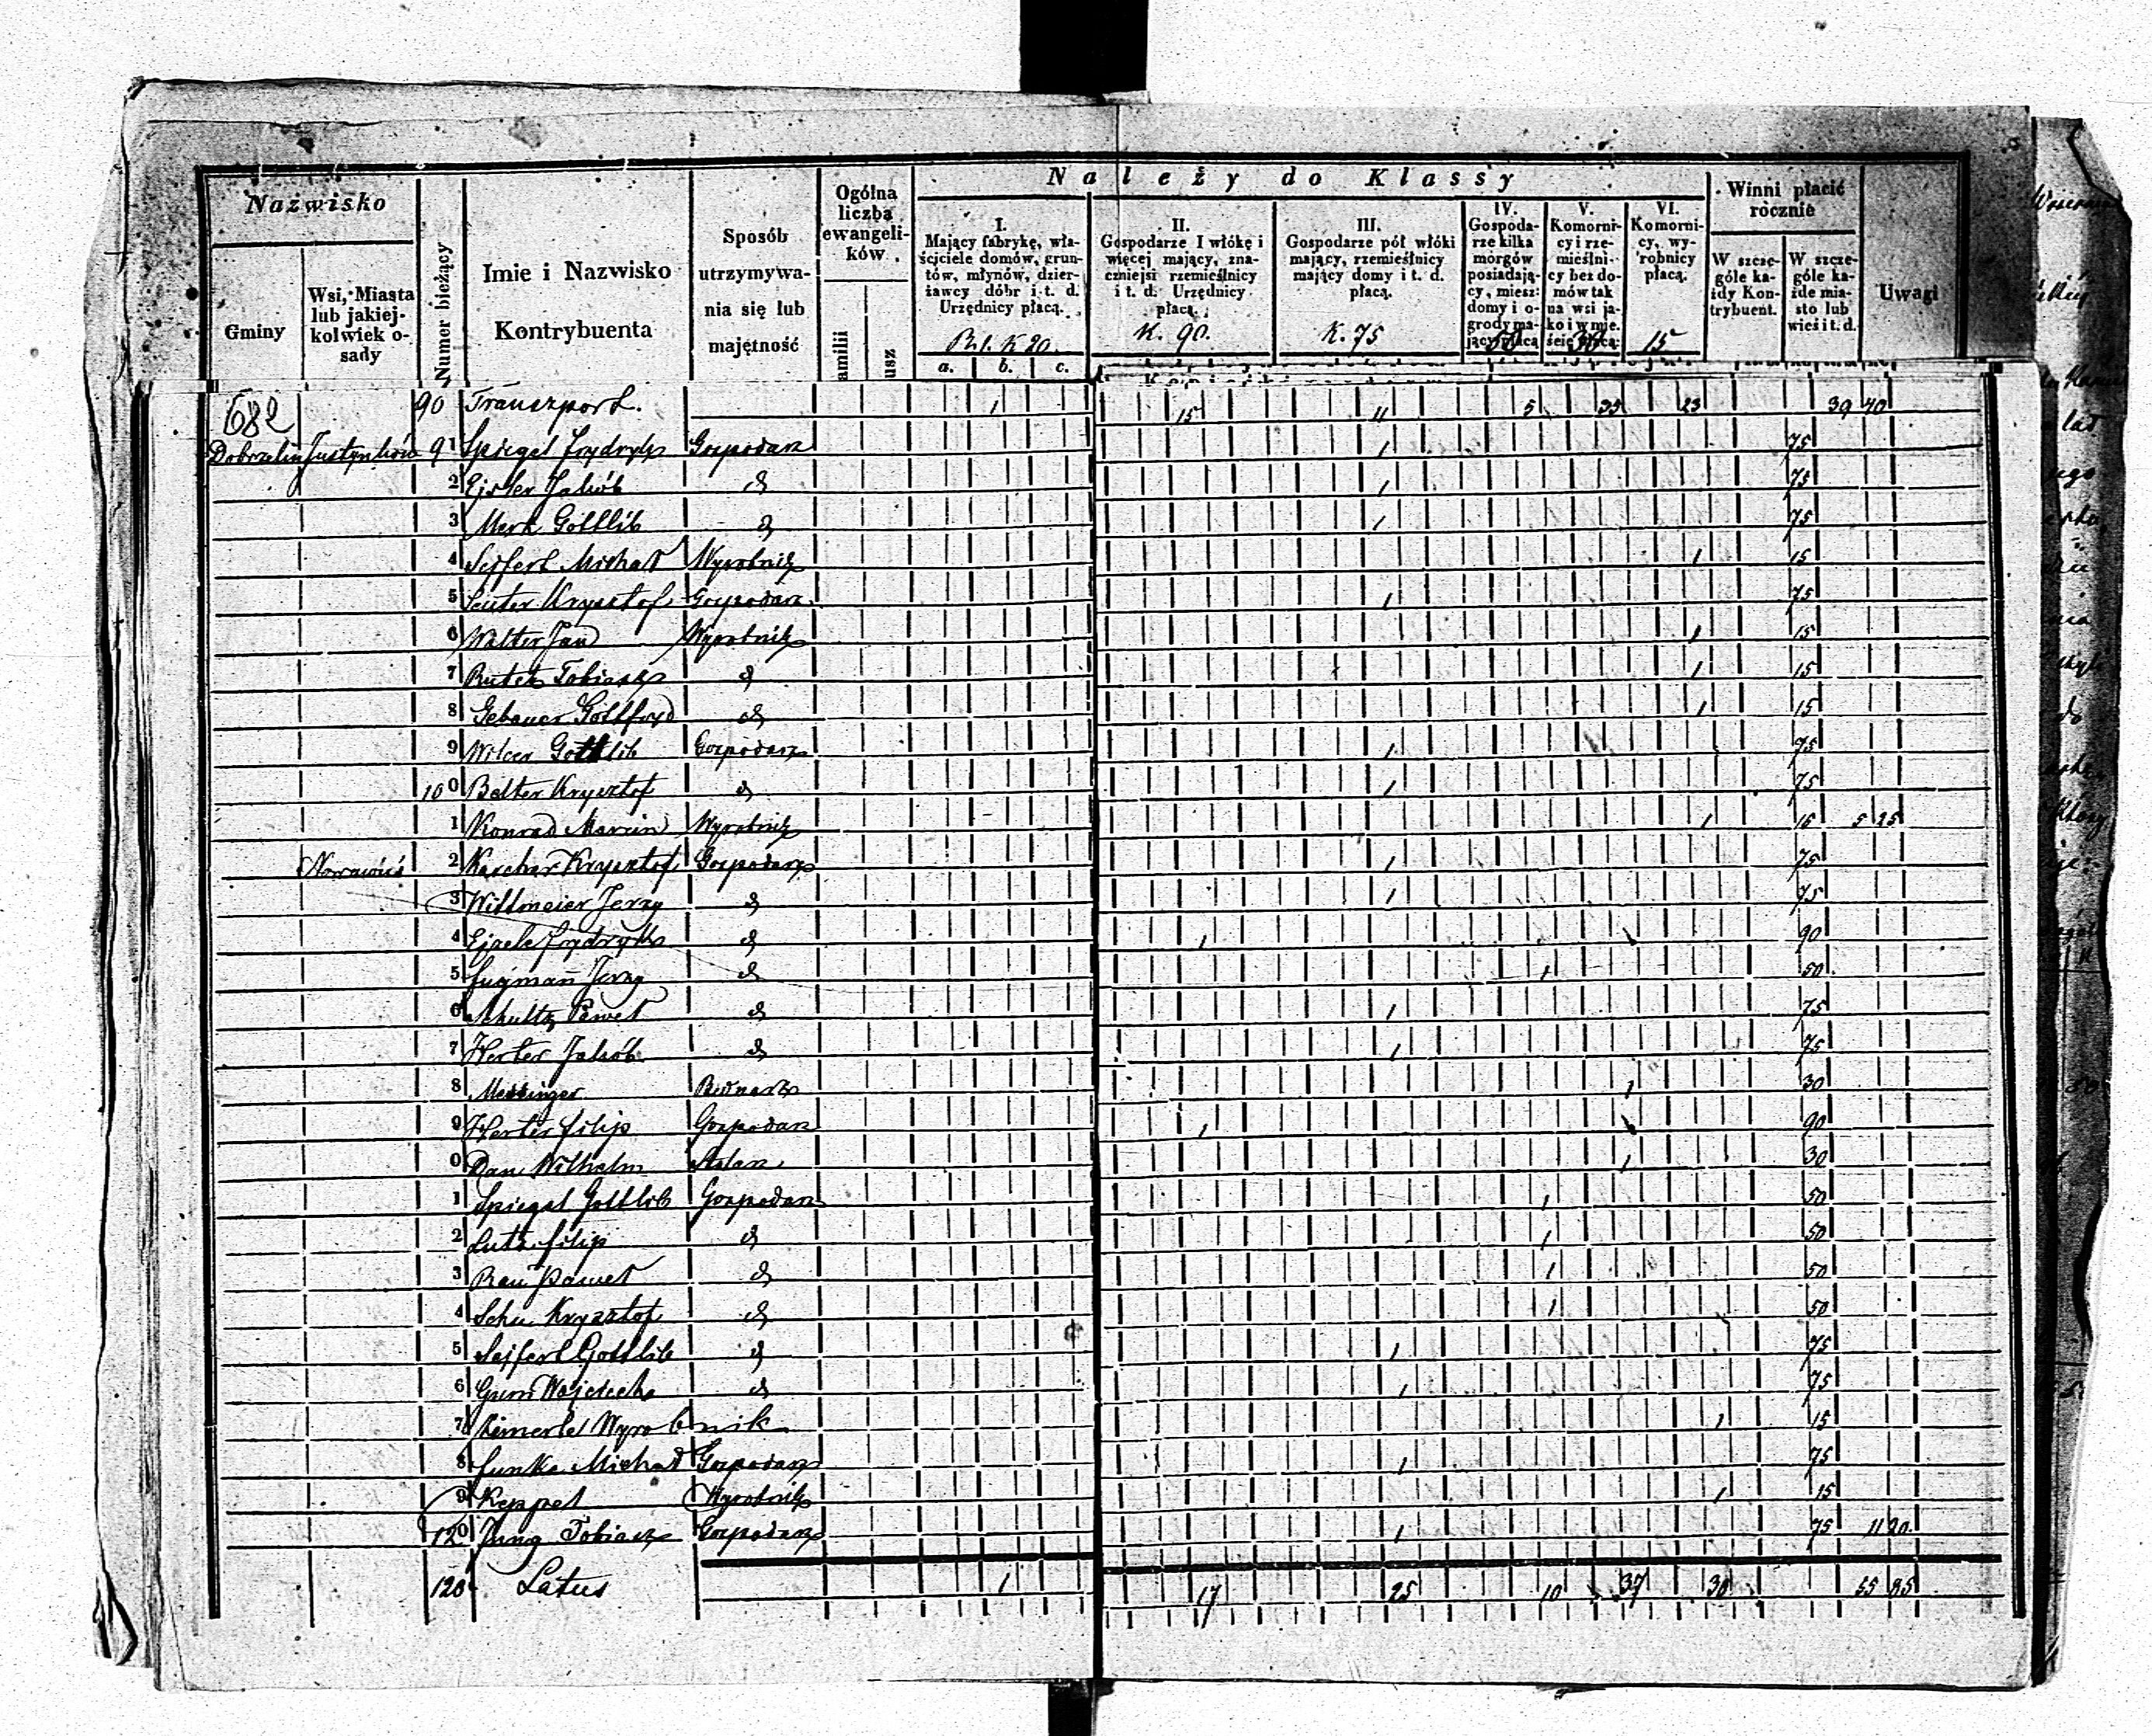 Nazwisko
Gminy
Wsi, Miasta lub jakiej-kolwiek o-sady
Numer bieżący
Imie i Nazwisko
Kontrybuenta
Sposób utrzymywa-nia się lub majętność
Ogólna liczba ewangeli-ków
amilii
usz
Należy do Klassy
I. Mający fabrykę, wła-ściciele domów, grun-tów, młynów, dzier-żawcy dóbr i t. d. Urzędnicy płacą.
R. 1. K 20.
a. b. c.
II. Gospodarze I włókę i więcej mający, zna-czniejsi rzemieślnicy i t. d. Urzędnicy płacą.
K. 90.
III. Gospodarze pół włóki mający, rzemieślnicy mający domy i t. d. płacą.
K. 75
IV. Gospoda-rze kilka morgów posiadają-cy, miesz: domy i o-grody ma-jący płacą
50
V. Komorni-cy i rze-mieślni-cy bez do-mów tak na wsi ja-ko i w mie-ście płacą.
30
VI. Komorni-cy, wy-robnicy płacą.
15
Winni płacić rocznie
W szcze-góle ka-żdy Kon-trybuent.
W szcze-góle ka-żde mia-sto lub wieś i t. d.
Uwagi
682 90 Transport. 1 15 11 5 35 23 39 40
Dobrzelin Justynków 91 Spiegel Frydryk Gospodarz 1 75
2 Ejsler Jakób d 1 75
3 Merk Gottlib d 1 75
4 Sejfert Michał Wyrobnik 1 15
5 Seuter Krysztof Gospodarz 1 75
6 Walter Jan Wyrobnik 1 15
7 Ruter Tobiasz d 1 15
8 Gebauer Gottfryd d 1 15
9 Wilcer Gottlib Gospodarz 1 75
100 Belter Krysztof d 1 75
1 Konrad Marcin Wyrobnik 1 15 5 25
Nowawieś 2 Karcher Krysztof Gospodarz 1 75
3 Wittmeier Jerzy d 1 75
4 Ejzele Frydryk d 1 90
5 Fugmann Jerzy d 1 50
6 Schultz Paweł d 1 75
7 Herter Jakób d 1 75
8 Messinger Bednarz 1 30
9 Herter Filip Gospodarz 1 90
0 Dan Wilhelm Stolarz 1 30
1 Spiegel Gottlib Gospodarz 1 50
2 Lutz Filip d 1 50
3 Rau Paweł d 1 50
4 Schu Krysztof d 1 50
5 Sejfert Gottlib d 1 75
6 Wojciech d 1 75
7 Wyrobnik 1 15
8 Funke Michał Gospodarz 1 75
9 Keppel Wyrobnik 1 15
120 Jung Tobiasz Gospodarz 1 75 11 20
120 Latus 1 17 25 10 37 30 55 85